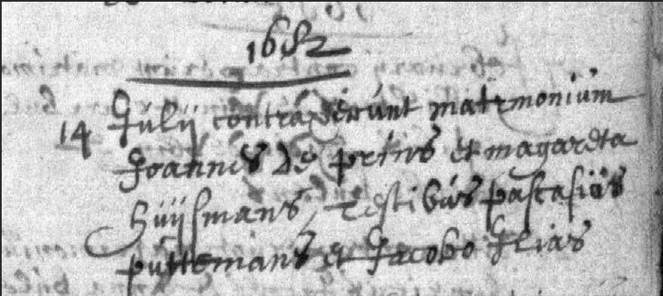 1682
14 Julij contraxerunt matrmonium
Joannes De prins et magareta
Huijsmans, Testibus pascasius
puttemans et Jacobo Elias